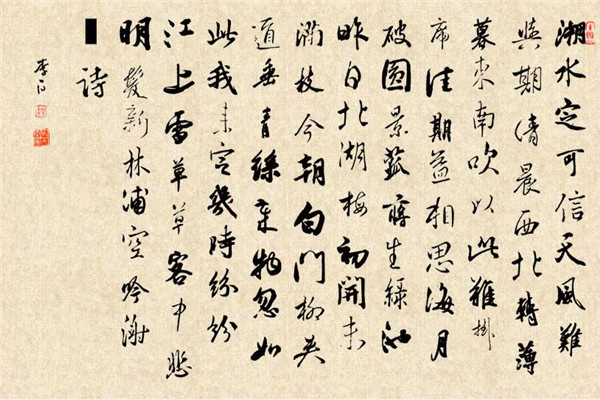 潮水定可信天風難
與期清晨西北轉薄
暮東南吹以此難掛
席佳期益相思海月
破圓景菰蔣生綠池
昨日北湖梅初開未
滿枝今朝白門柳夾
道垂青絲歲物忽如
此我來定幾時紛紛
江上雪草草客中悲
明發新林浦空吟謝
詩
李白